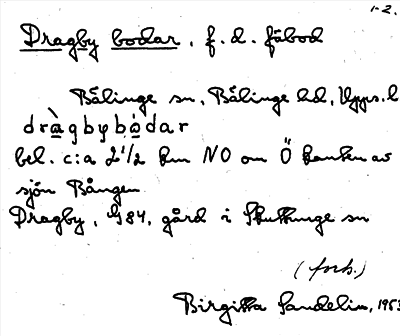 1-2.
Dragby bodar, f. d. fäbod
Bälinge sn, Bälinge hd, Upps. l
dràgbybòdar
bel. c:a 2 1/2 km NO om Ö kanken av
sjön Bången
Dragby, 984, gård i Skuttunge sn
(forts.)
Birgitta Sandelin, 1953